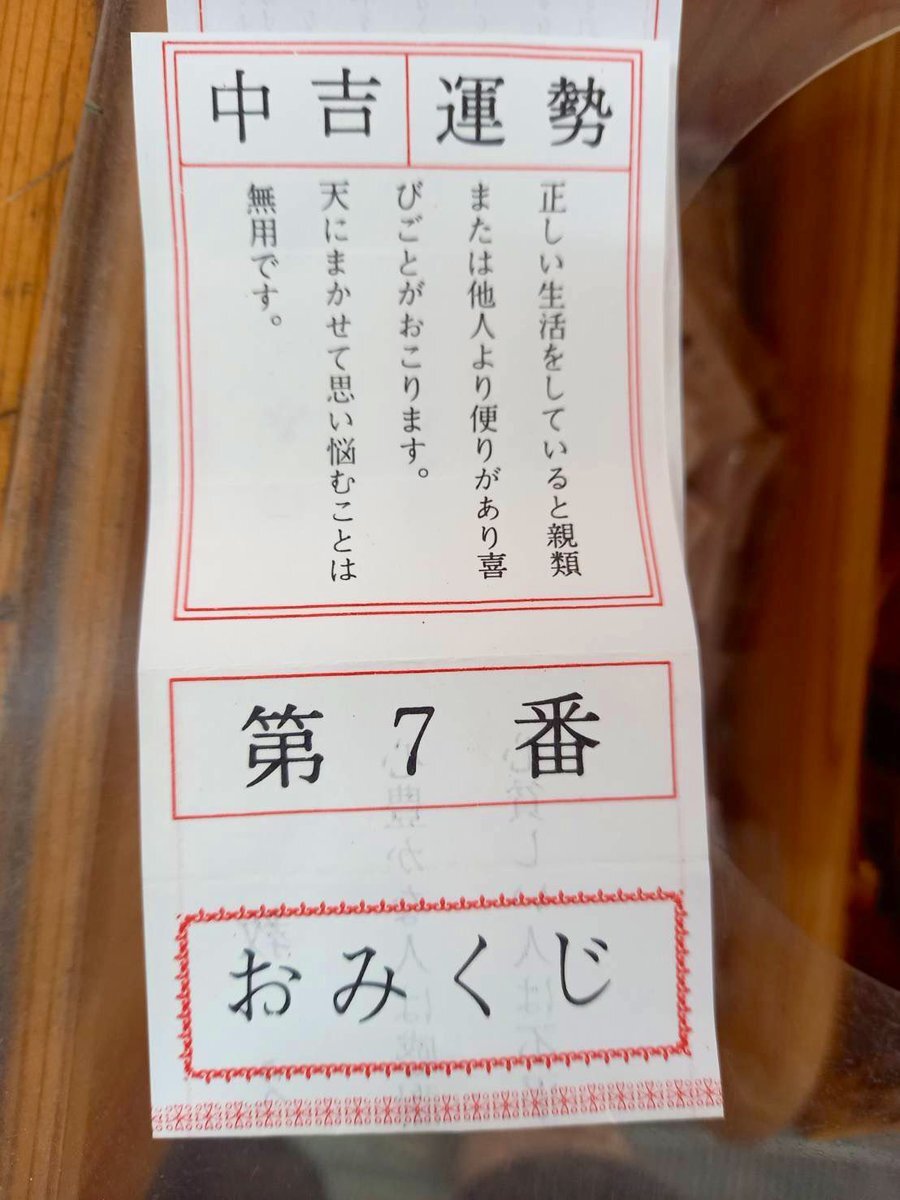 中吉 運勢
正しい生活をしていると親類
または他人より便りがあり喜
びごとがおこります。
天にまかせて思い悩むことは
無用です。
第7番
おみくじ